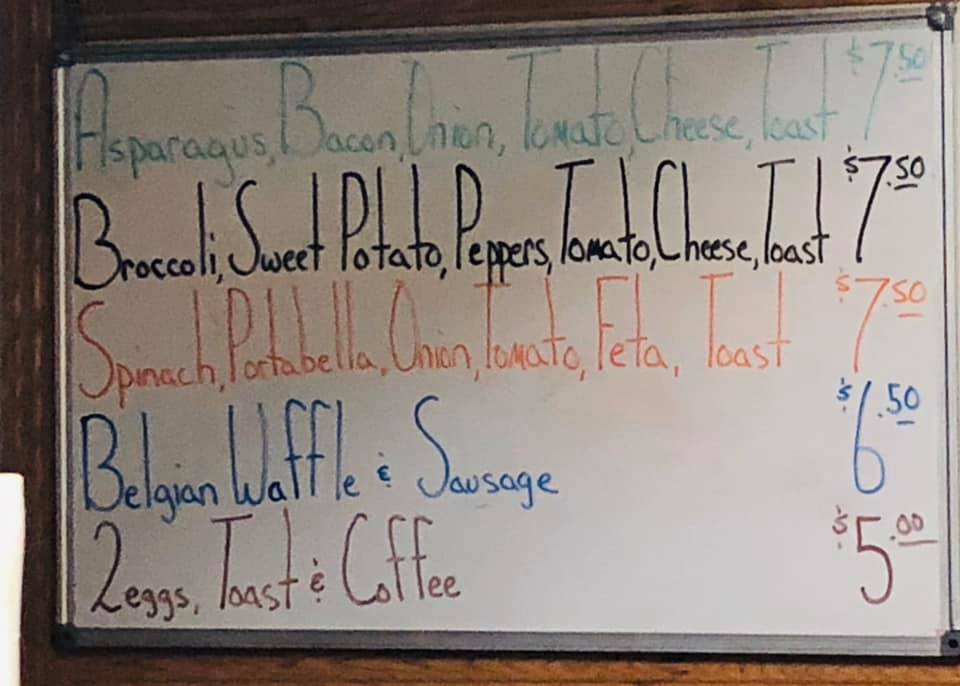 Asparagus, Bacon, Onion, Tomato, Cheese, Toast $7.50
Broccoli, Sweet Potato, Peppers, Tomato, Cheese, Toast $7.50
Spinach, Portabella, Onion, Tomato, Feta, Toast $7.50
Belgian Waffle & Sausage $6.50
2 eggs, Toast & Coffee $5.00